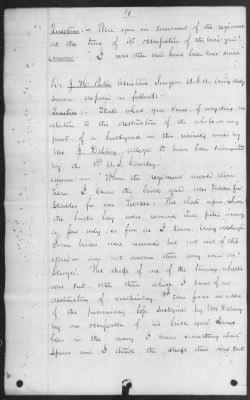 11
Question:— Were you in command of the regiment
at the time of its occupation of the brick yard?
Answer:— "I was then and have been ever since."
Dr. J. H. Porter Assistant Surgeon U.S.A. being duly
sworn deposes as follows:—
Question:— State what you know, if anything, in
relation to the destruction of the whole or any
part, of a brickyard in this vicinity owned by
Mr. J. Delany alleged to have been occupied
by the U.S. Cavalry.
Answer:— "When the regiment moved down
here I know the brick yard was used for
stables for our horses. The sheds upon which
the bricks lay were removed and piled away,
a few only so far as I know, being destroyed.
Some bricks were removed but not out of the
yard— am not aware that any were de-
stroyed. The shaft of one of the
was cut. other than which I know of no
destruction of machinery. Can form no idea
of the pecuniary loss sustained by Mr. Delany
by our occupation of his brick yard. Having
been in the army I know something about
and I think the shaft was cut